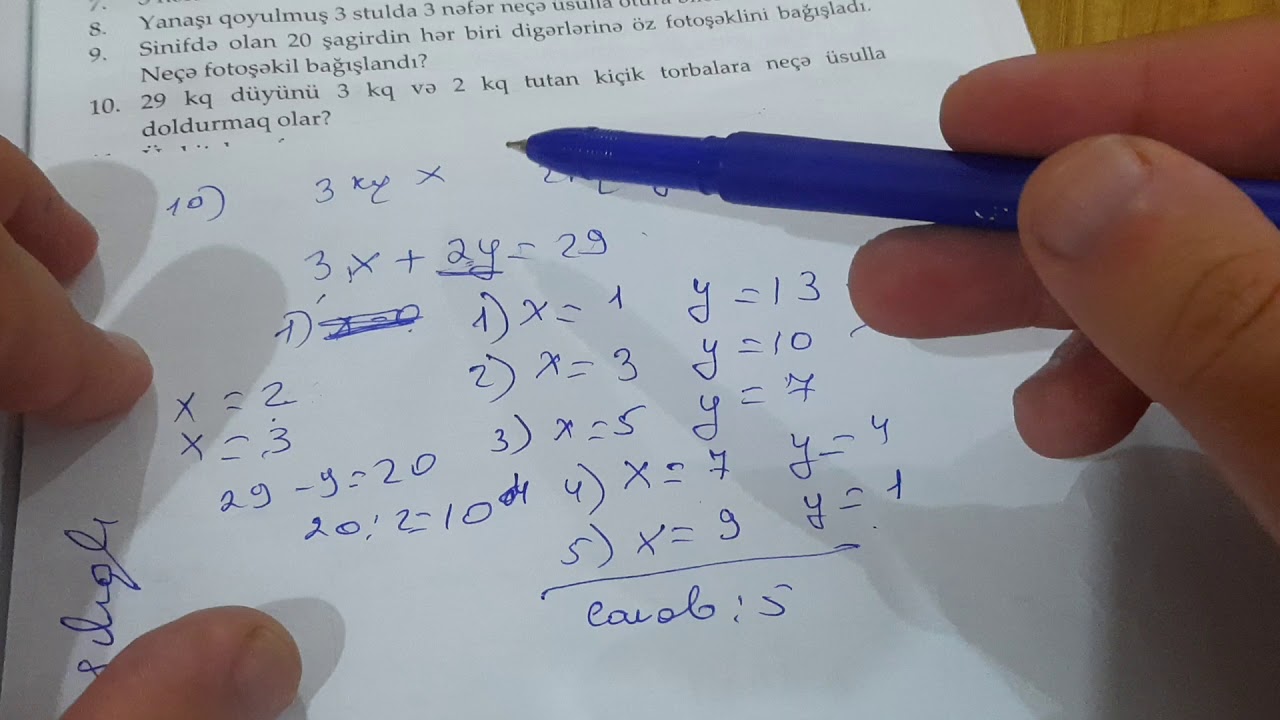 8. Yanaşı qoyulmuş 3 stulda 3 nəfər neçə üsulla
9. Sinifdə olan 20 şagirdin hər biri digərlərinə öz fotoşəklini bağışladı.
Neçə fotoşəkil bağışlandı?
10. 29 kq düyünü 3 kq və 2 kq tutan kiçik torbalara neçə üsulla
doldurmaq olar?
10) 3 kq x
3x + 2y = 29
1) 1) x = 1 y = 13
2) x = 3 y = 10
x = 2
3) x = 5 y = 7
x = 3
4) x = 7 y = 4
29 - 9 = 20
20 : 2 = 10
5) x = 9 y = 1
Cavab : 5